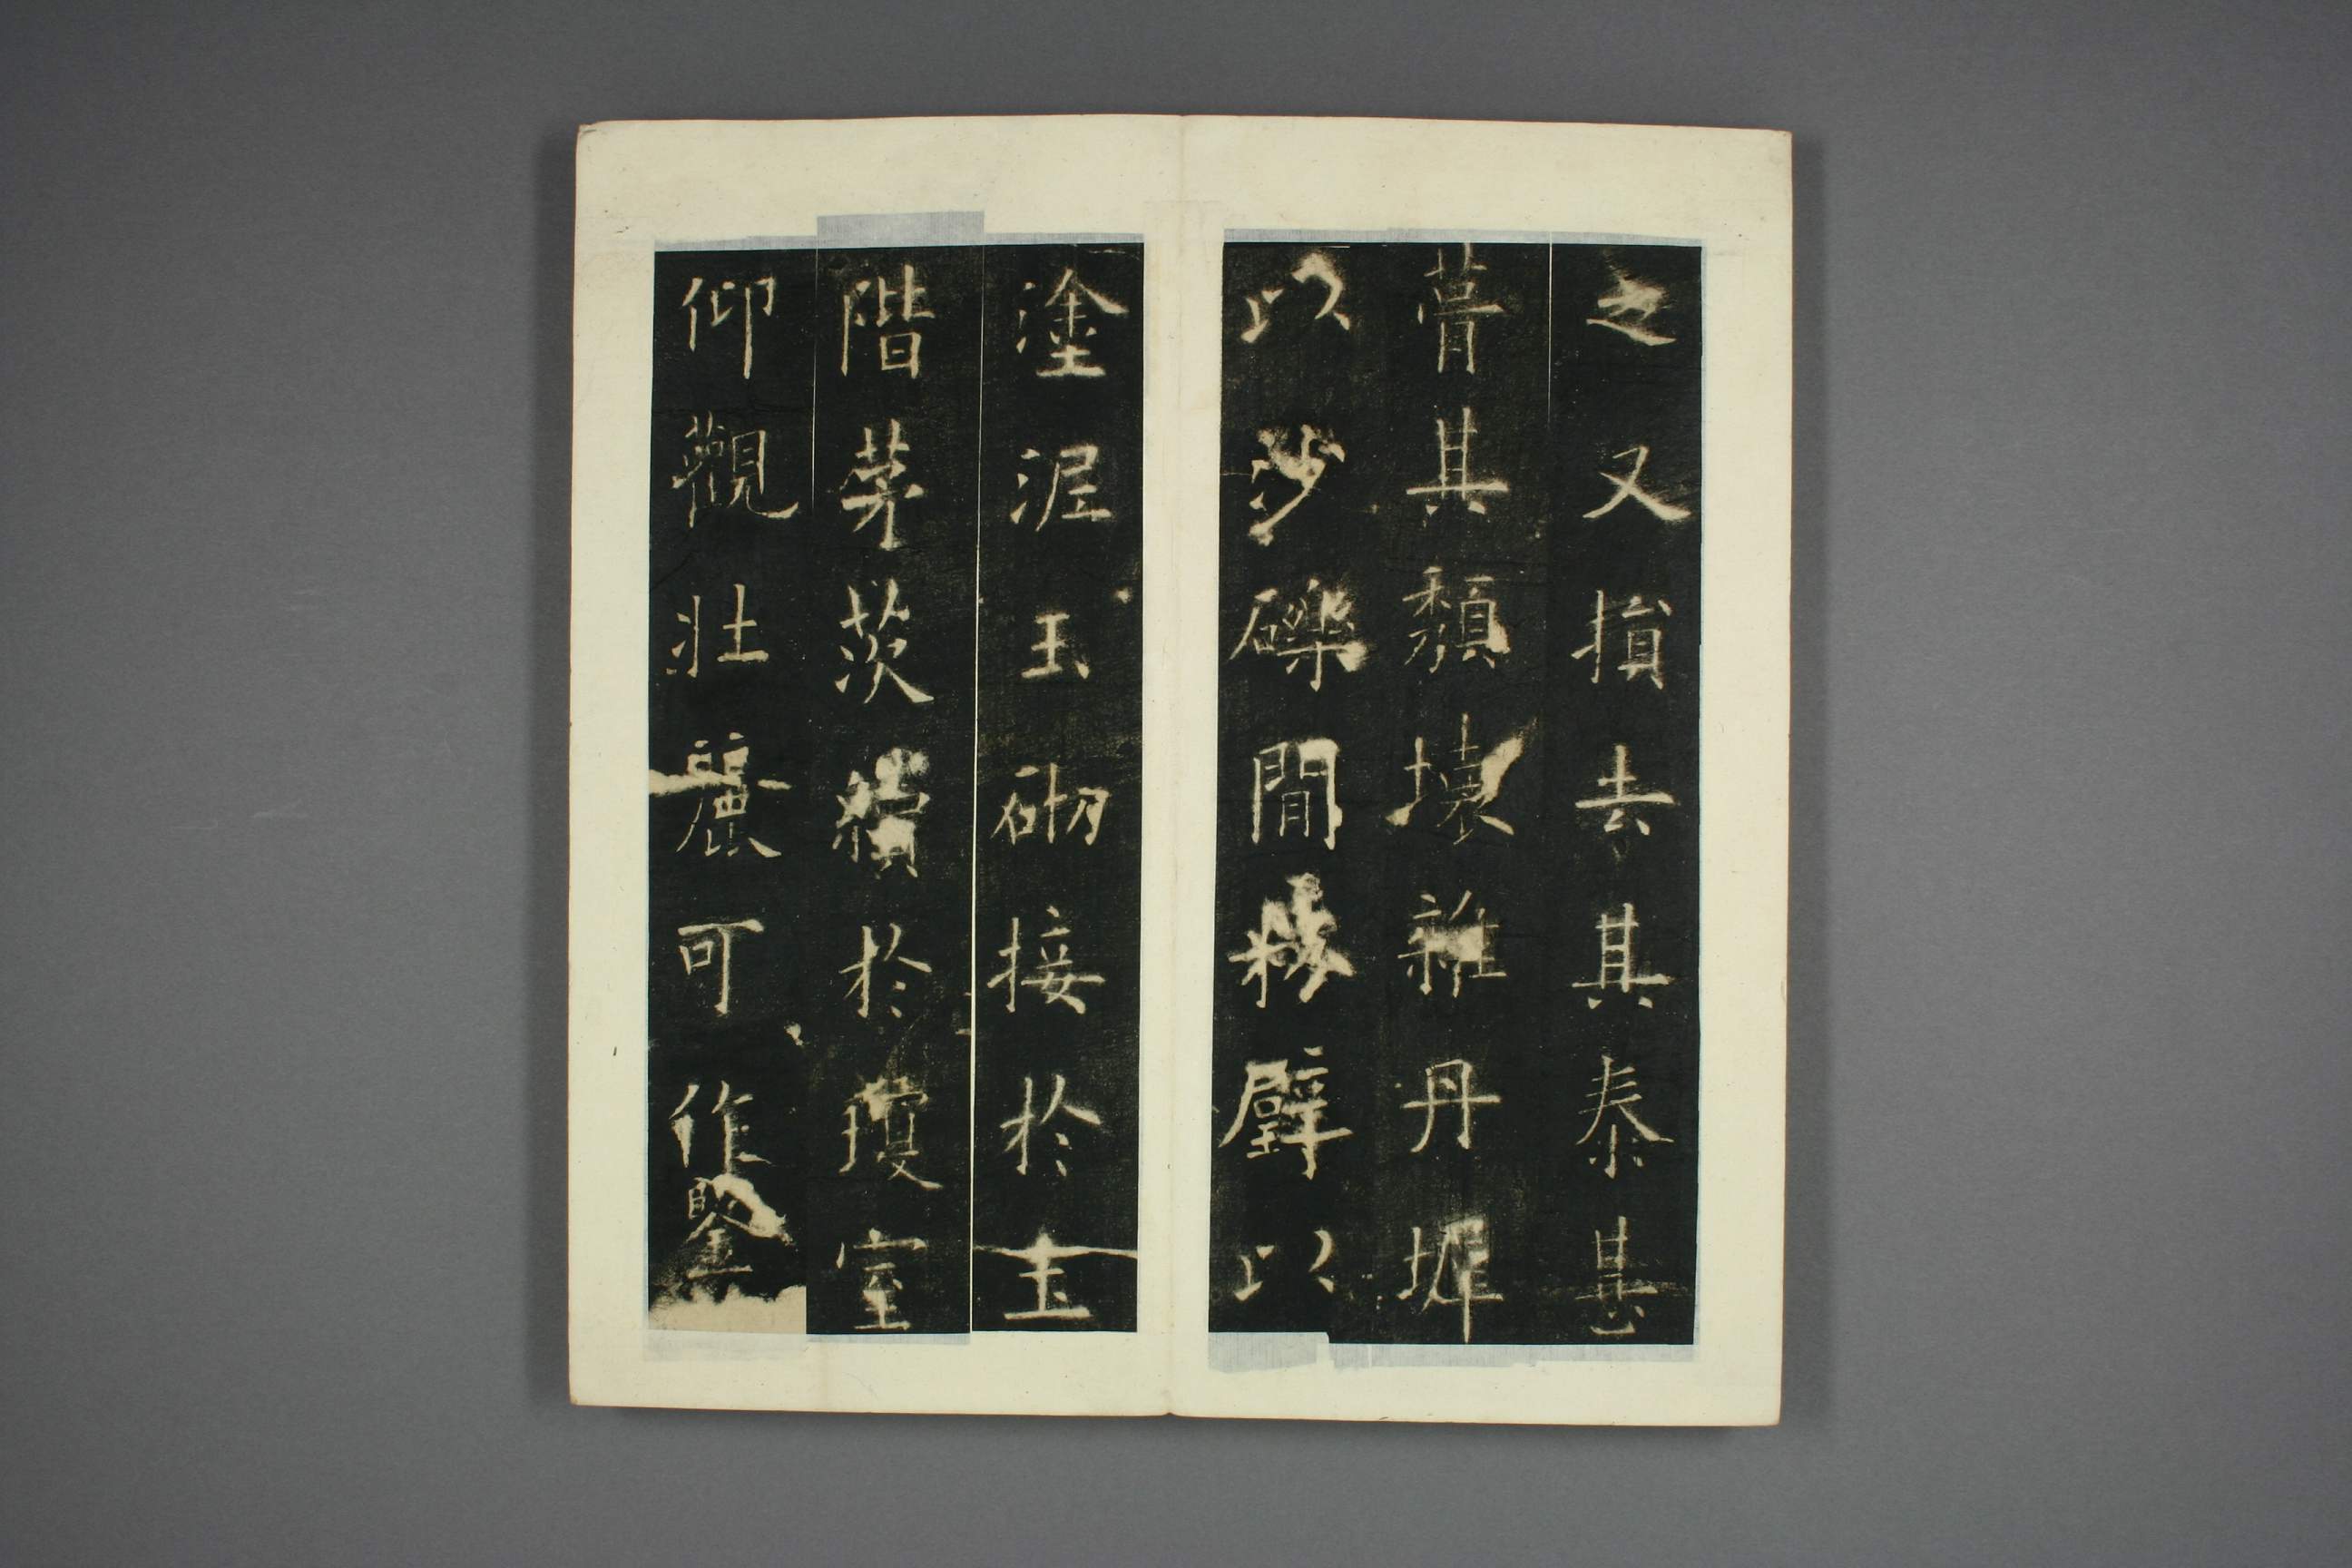 之又損去其泰甚
葺其頹壞雜丹墀
以沙礫間粉壁以
塗泥玉砌接於土
階茅茨續於瓊室
仰觀壯麗可作鑒